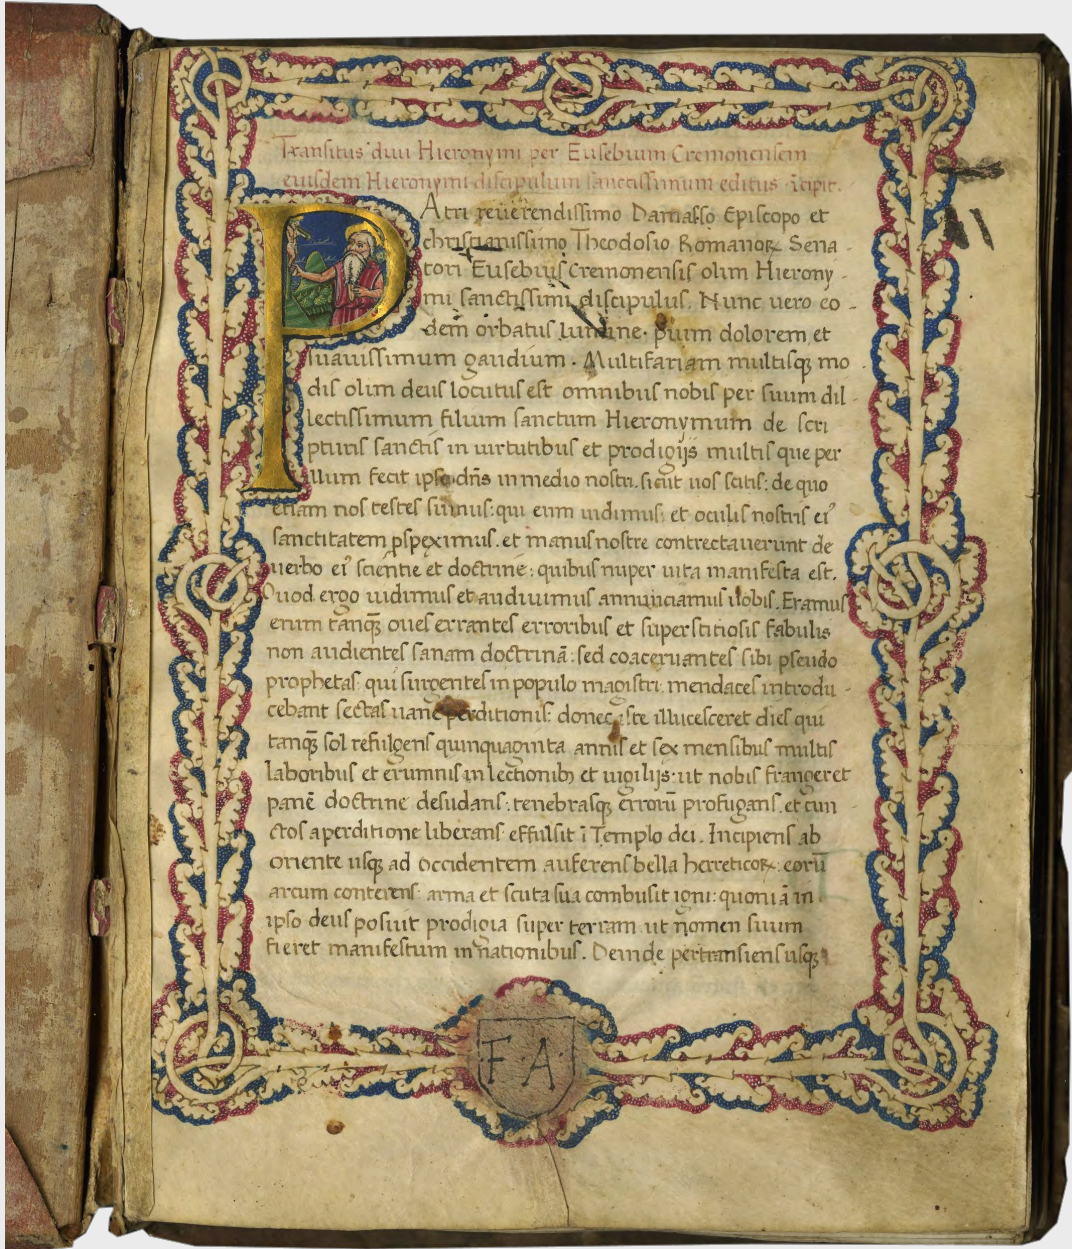 Transitus diui Hieronymi per Eusebium Cremonensem
eiusdem Hieronymi discipulum sanctissimum editus · īcipit.
PAtri reuerendissimo Damasso Episcopo et
christianissimo Theodosio Romanoꝝ Sena-
tori Eusebius Cremonensis olim Hierony-
mi sanctissimi discipulus. Nunc uero eo-
dem orbatus lumine · pium dolorem et
suauissimum gaudium · Multifariam multisqꝫ mo
dis olim deus locutus est omnibus nobis per suum dil-
lectissimum filium sanctum Hieronymum de scri
pturis sanctis in uirtutibus et prodigijs multis que per
illum fecit ipse dn̄s in medio nostri. sicut uos scitis: de quo
etiam nos testes sumus: qui eum uidimus: et oculis nostris eiꝰ
sanctitatem ꝑspeximus. et manus nostre contrectauerunt de
uerbo eiꝰ scientie et doctrine: quibus nuper uita manifesta est.
Quod ergo uidimus et audiuimus annunciamus uobis. Eramus
enim tanqꝫ oues errantes erroribus et superstitiosis fabulis
non audientes sanam doctrinā: sed coaceruantes sibi pseudo
prophetas qui surgentes in populo magistri mendaces introdu-
cebant sectas uane perditionis: donec iste illucesceret dies qui
tanqꝫ sol refulgens quinquaginta annis et sex mensibus multis
laboribus et erumnis in lectionibꝫ et uigilijs: ut nobis frangeret
panē doctrine desudans: tenebrasqꝫ errorū profugans. et cun
ctos a perditione liberans effulsit ī Templo dei. Incipiens ab
oriente usqꝫ ad occidentem auferens bella herreticoꝝ: eorū
arcum conterens: arma et scuta sua combusit igni: quoniā in
ipso deus posiut prodigia super terram ut nomen suum
fieret manifestum in nationibus. Deinde pertransiens usqꝫ
·F·A·